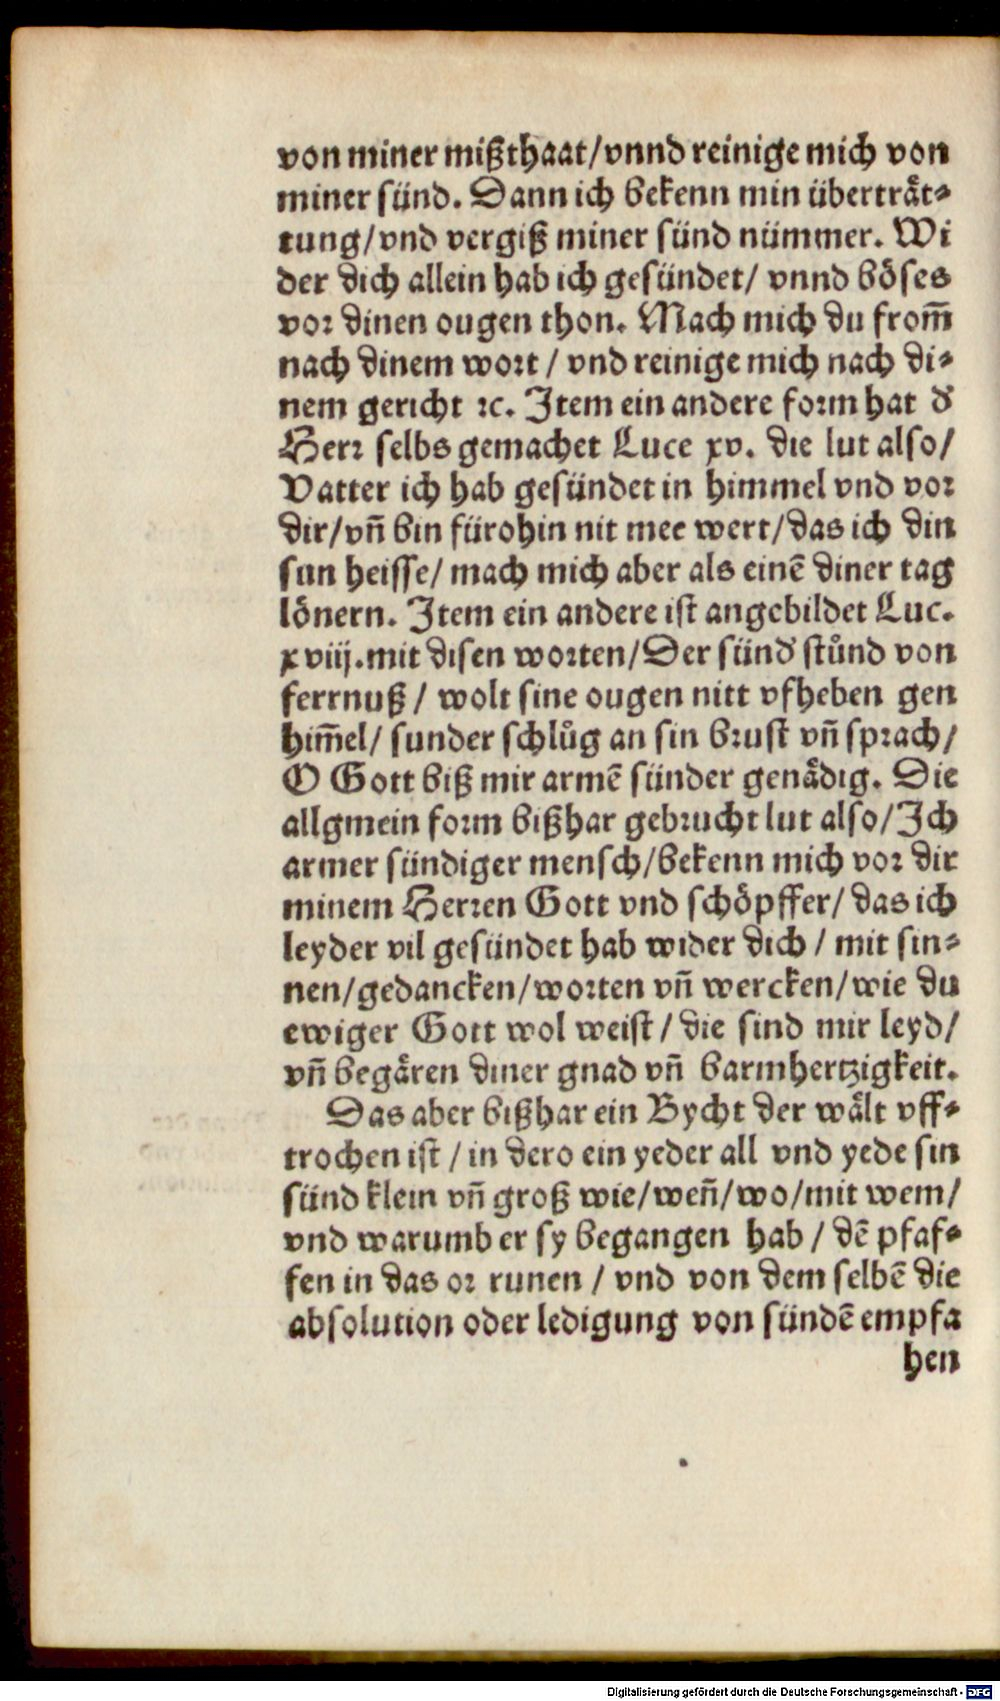 von miner mißthaat/vnnd reinige mich von
miner sünd. Dann ich bekenn min überträt⸗
tung/vnd vergiß miner sünd nümmer. Wi
der dich allein hab ich gesündet/ vnnd böses
vor dinen ougen thon. Mach mich du from̄
nach dinem wort / vnd reinige mich nach di⸗
nem gericht ꝛc. Item ein andere form hat d̕
Herr selbs gemachet Luce xv. die lut also/
Vatter ich hab gesündet in himmel vnd vor
dir/vn̄ bin fürohin nit mee wert/das ich din
sun heisse/ mach mich aber als einē diner tag
lönern. Item ein andere ist angebildet Luc.
xviij.mit disen worten/Der sünd̕ stůnd von
ferrnuß / wolt sine ougen nitt vfheben gen
him̄el/ sunder schlůg an sin brust vn̄ sprach/
O Gott biß mir armē sünder genädig. Die
allgmein form bißhar gebrucht lut also/Ich
armer sündiger mensch/bekenn mich vor dir
minem Herren Gott vnd schöpffer/ das ich
leyder vil gesündet hab wider dich / mit sin⸗
nen/gedancken/worten vn̄ wercken/wie du
ewiger Gott wol weist / die sind mir leyd/
vn̄ begären diner gnad vn̄ barmhertzigkeit.
Das aber bißhar ein Bycht der wält vff⸗
trochen ist / in dero ein yeder all vnd yede sin
sünd klein vn̄ groß wie/wen̄/wo/mit wem/
vnd warumb er sy begangen hab / dē pfaf⸗
fen in das or runen / vnd von dem selbē die
absolution oder ledigung von sündē empfa
hen
Digitalisierung gefördert durch die Deutsche Forschungsgemeinschaft - DFG